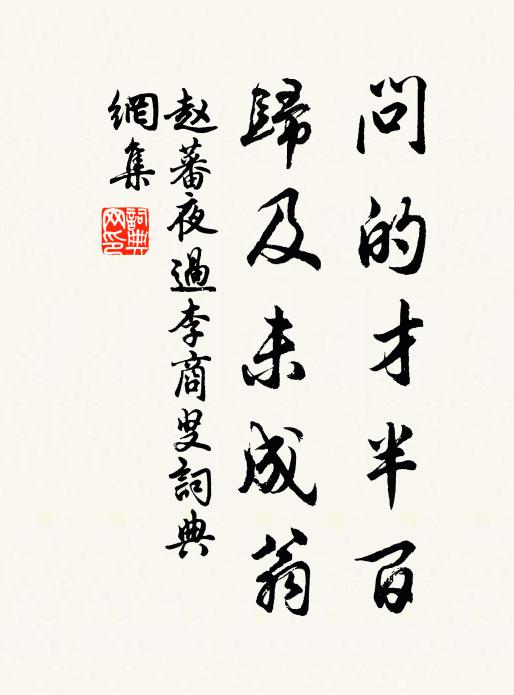 問的才半百
歸及未成翁
赵蕃夜過李商叟詞典
網集
詞典網印